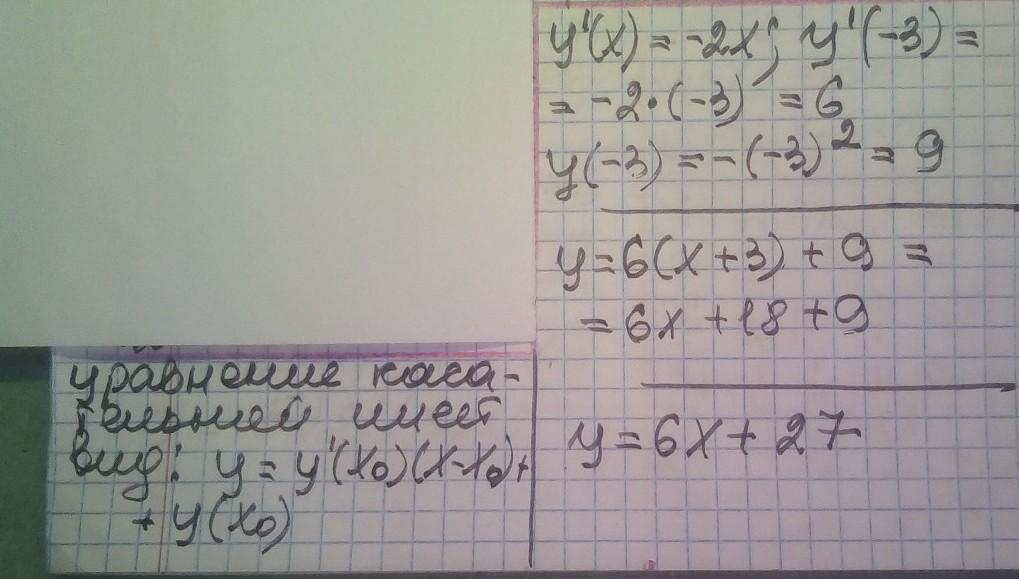 y'(x) = -2x; y'(-3) =
= -2·(-3) = 6
y(-3) = -(-3)² = 9
y = 6(x+3) + 9 =
= 6x + 18 + 9
y = 6x + 27
уравнение каса-
тельной имеет
вид: y = y'(x₀)(x-x₀)+
+ y(x₀)